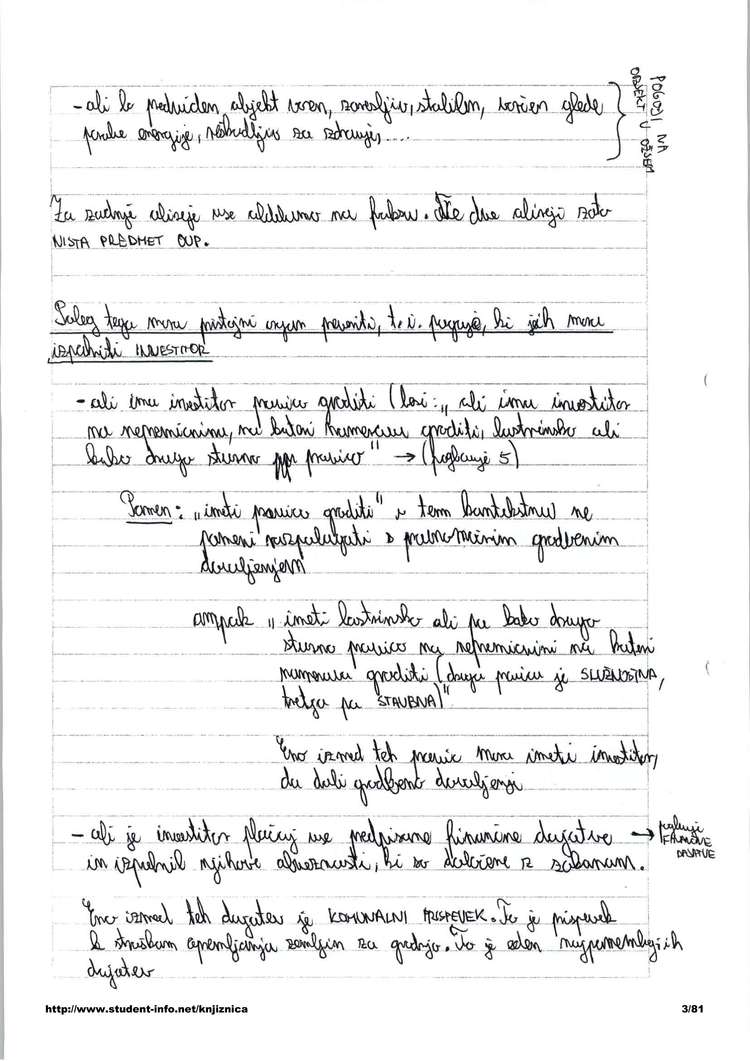 - ali bo predviden objekt varen, zanesljiv, stabilen, varčen glede
porabe energije, neškodljiv za zdravje, ....
POGOJI NA
OBJEKT V OŽJEM
Za zadnji alineji vse obdelamo na faksu. Te dve alineji zato
NISTA PREDMET OUP.
Poleg tega mora pristojni organ preveriti, t.i. pogoje, ki jih mora
izpolniti INVESTITOR
- ali ima investitor pravico graditi (lasi: „ ali ima investitor
na nepremičnini, na kateri namerava graditi, lastninsko ali
kako drugo stvarno pravico" → (poglavje 5)
Pomen: „imeti pravico graditi" v tem kontekstu ne
pomeni razpolagati s pravnomočnim gradbenim
dovoljenjem
ampak „ imeti lastninsko ali pa kako drugo
stvarno pravico na nepremičnini na kateri
namerava graditi (druga pravica je SLUŽNOSTNA,
tretja pa STAVBNA)"
Eno izmed teh pravic mora imeti investitor,
da dobi gradbeno dovoljenje
- ali je investitor plačal vse predpisane finančne dajatve →
in izpolnil njihove obveznosti, ki so določene z zakonom.
poglavje
FINANČNE
DAJATVE
Eno izmed teh dajatev je KOMUNALNI PRISPEVEK. To je prispevek
k stroškom opremljanja zemljišč za gradnjo. To je eden najpomembnejših
dajatev
http://www.student-info.net/knjiznica
3/81